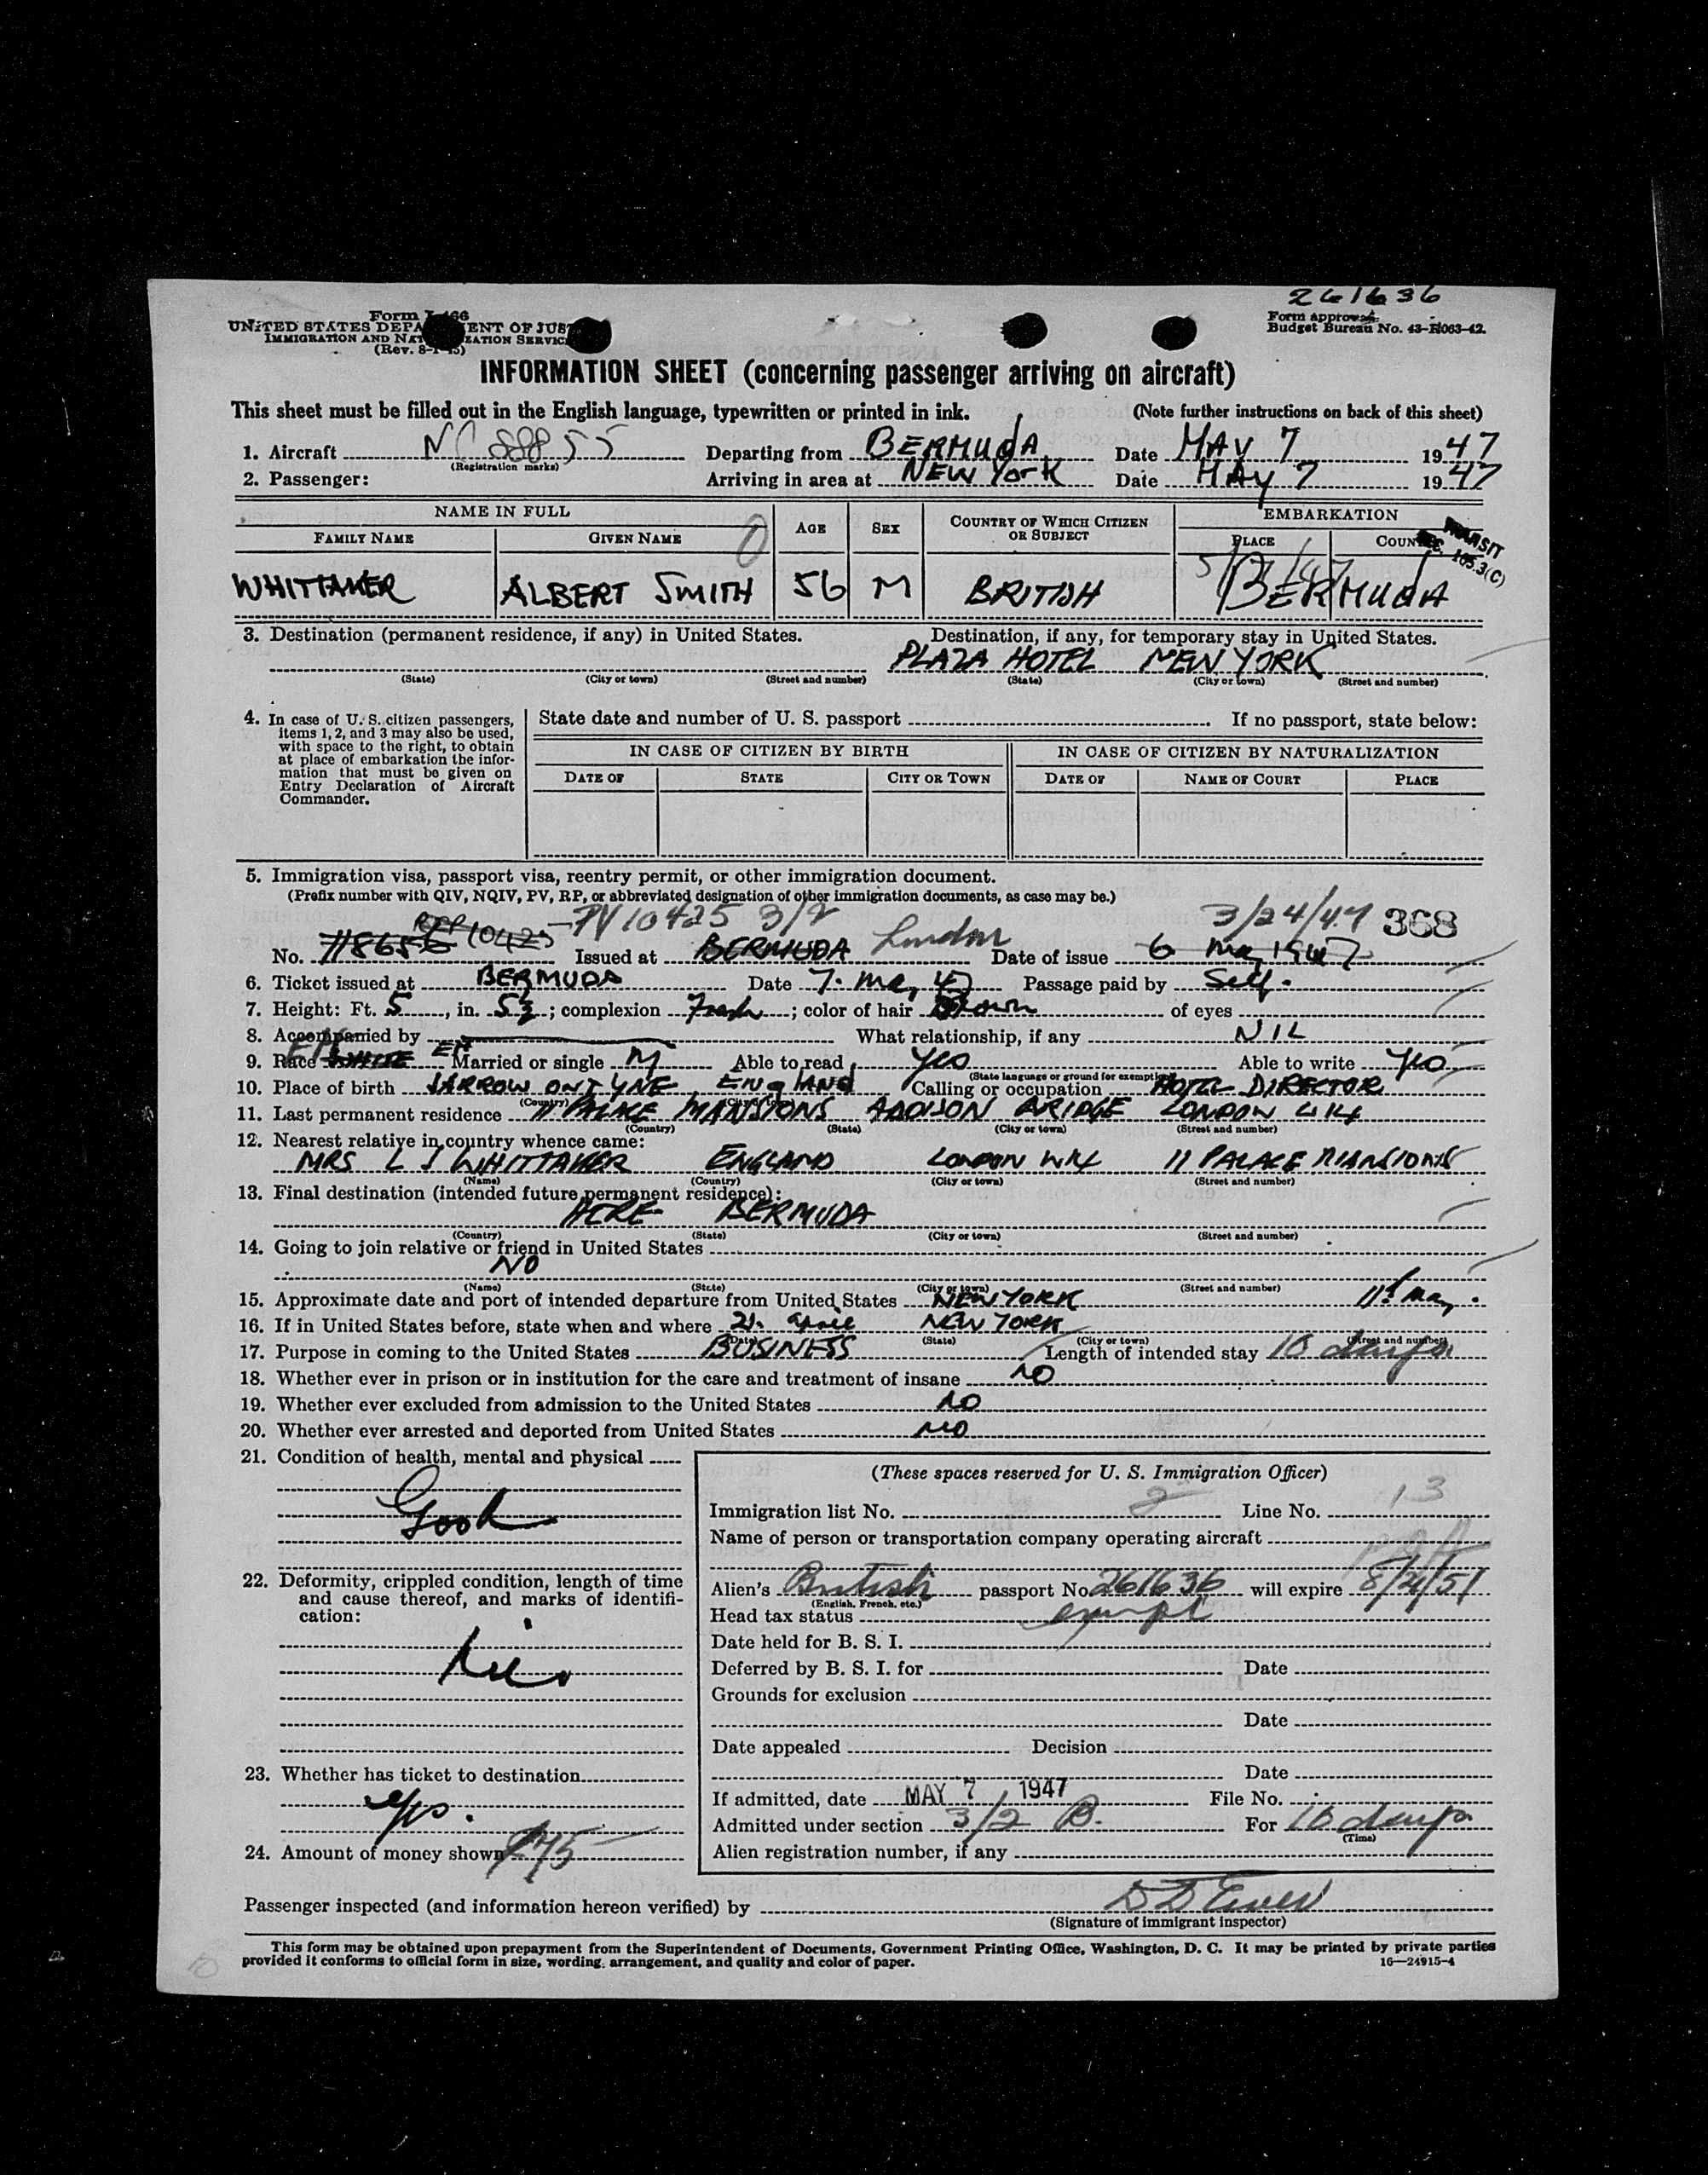 261636
Form I-466
UNITED STATES DEPARTMENT OF JUSTICE
IMMIGRATION AND NATURALIZATION SERVICE
(Rev. 8-1-45)
Form approved.
Budget Bureau No. 43-R063-42.
INFORMATION SHEET (concerning passenger arriving on aircraft)
This sheet must be filled out in the English language, typewritten or printed in ink. (Note further instructions on back of this sheet)
1. Aircraft NC 88855 Departing from BERMUDA Date MAY 7 1947
(Registration marks)
2. Passenger: Arriving in area at NEW YORK Date MAY 7 1947
NAME IN FULL AGE SEX COUNTRY OF WHICH CITIZEN OR SUBJECT EMBARKATION
FAMILY NAME GIVEN NAME PLACE COUNTRY
TRANSIT
SEC. 105.3(C)
WHITTAKER ALBERT SMITH 56 M BRITISH BERMUDA
3. Destination (permanent residence, if any) in United States. Destination, if any, for temporary stay in United States.
PLAZA HOTEL NEW YORK
(State) (City or town) (Street and number) (State) (City or town) (Street and number)
4. In case of U. S. citizen passengers, items 1, 2, and 3 may also be used, with space to the right, to obtain at place of embarkation the information that must be given on Entry Declaration of Aircraft Commander.
State date and number of U. S. passport If no passport, state below:
IN CASE OF CITIZEN BY BIRTH IN CASE OF CITIZEN BY NATURALIZATION
DATE OF STATE CITY OR TOWN DATE OF NAME OF COURT PLACE
5. Immigration visa, passport visa, reentry permit, or other immigration document.
(Prefix number with QIV, NQIV, PV, RP, or abbreviated designation of other immigration documents, as case may be.)
10425 PV 10425 3/2 3/24/47 368
No. Issued at BERMUDA London Date of issue 6 May 1947
6. Ticket issued at BERMUDA Date 7. May 47 Passage paid by Self.
7. Height: Ft. 5, in. 5½; complexion Fresh; color of hair Brown of eyes
8. Accompanied by What relationship, if any NIL
9. Race WHITE Married or single M Able to read yes Able to write yes
(State language or ground for exemption)
10. Place of birth JARROW ON TYNE ENGLAND Calling or occupation HOTEL DIRECTOR
(Country) (City or town)
11. Last permanent residence 11 PALACE MANSIONS ADDISON BRIDGE LONDON W14
(Country) (State) (City or town) (Street and number)
12. Nearest relative in country whence came:
MRS L J WHITTAKER ENGLAND LONDON W14 11 PALACE MANSIONS
(Name) (Country) (City or town) (Street and number)
13. Final destination (intended future permanent residence):
HERE BERMUDA
(Country) (State) (City or town) (Street and number)
14. Going to join relative or friend in United States
NO
(Name) (State) (City or town) (Street and number)
15. Approximate date and port of intended departure from United States NEW YORK 11th May.
16. If in United States before, state when and where 21. April NEW YORK
(Date) (State) (City or town) (Street and number)
17. Purpose in coming to the United States BUSINESS Length of intended stay 10 days
18. Whether ever in prison or in institution for the care and treatment of insane NO
19. Whether ever excluded from admission to the United States NO
20. Whether ever arrested and deported from United States NO
21. Condition of health, mental and physical
Good
22. Deformity, crippled condition, length of time and cause thereof, and marks of identification:
23. Whether has ticket to destination
yes.
24. Amount of money shown $75
(These spaces reserved for U. S. Immigration Officer)
Immigration list No. 2 Line No. 13
Name of person or transportation company operating aircraft
Alien's British passport No. 261636 will expire 8/21/51
(English, French, etc.)
Head tax status exempt
Date held for B. S. I.
Deferred by B. S. I. for Date
Grounds for exclusion
Date
Date appealed Decision
Date
If admitted, date MAY 7 1947 File No.
Admitted under section 3/2 B. For 10 days
(Time)
Alien registration number, if any
Passenger inspected (and information hereon verified) by
(Signature of immigrant inspector)
This form may be obtained upon prepayment from the Superintendent of Documents, Government Printing Office, Washington, D. C. It may be printed by private parties
provided it conforms to official form in size, wording, arrangement, and quality and color of paper. 16—24915-4